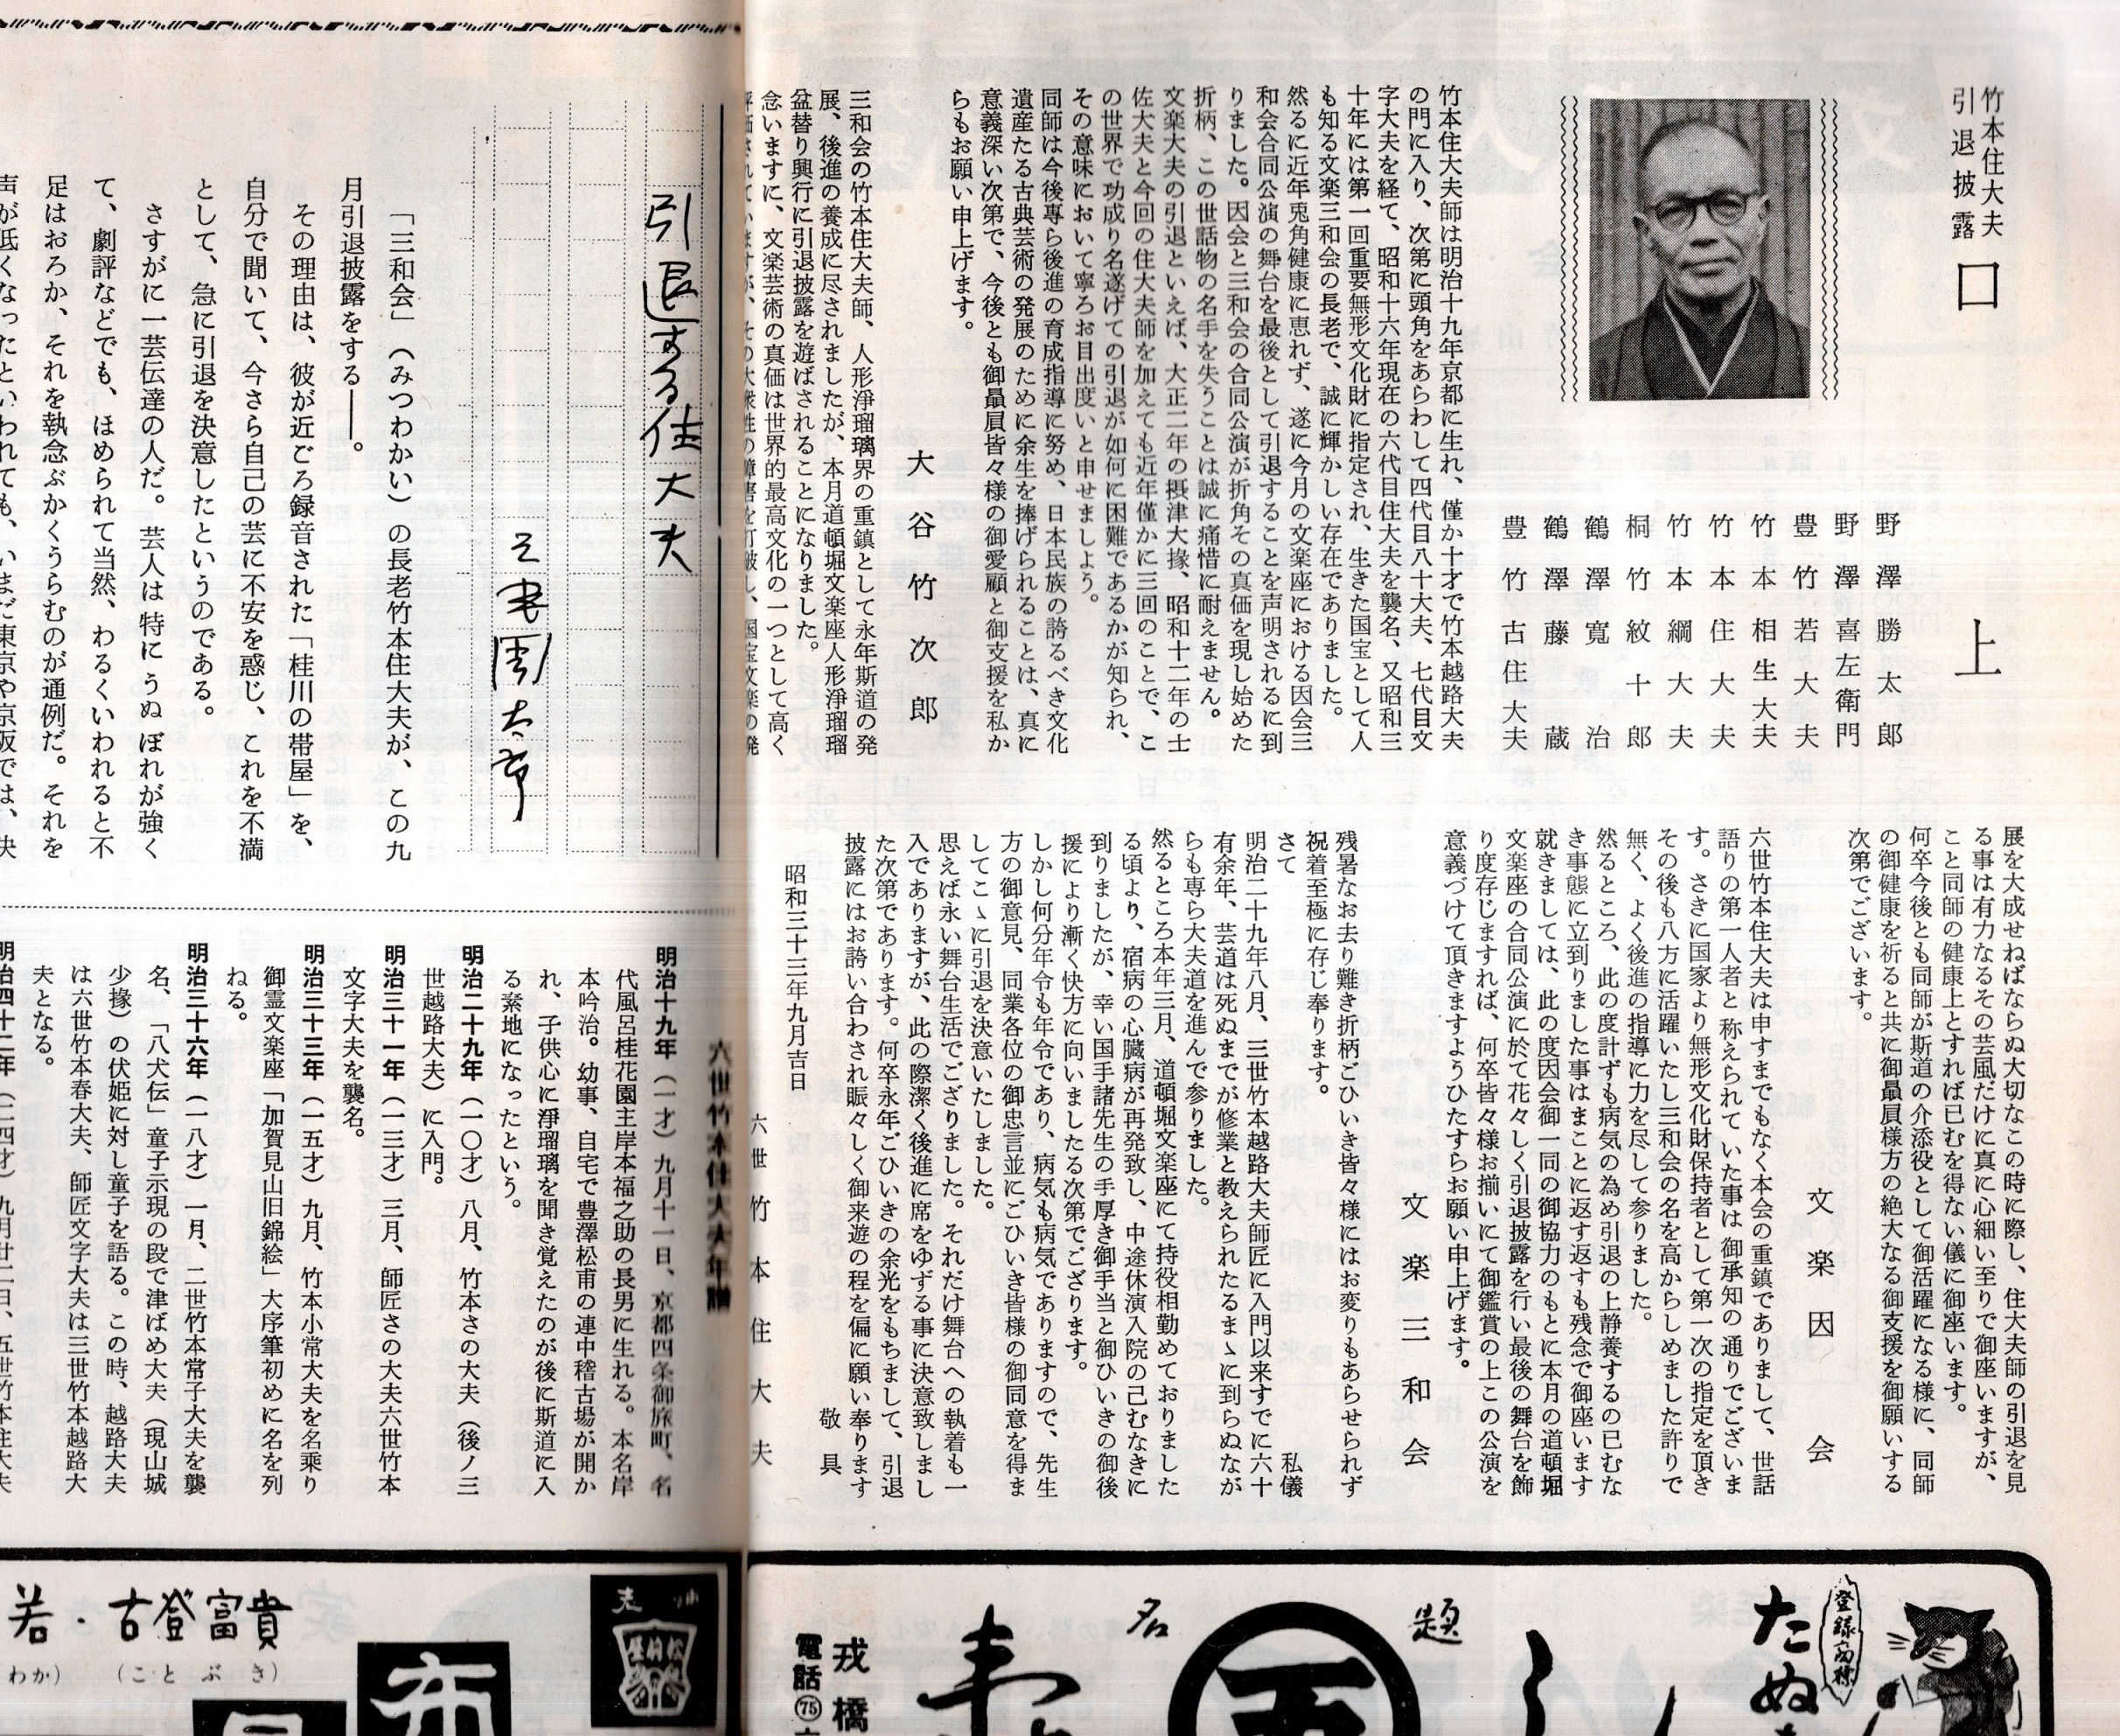 竹本住大夫
引退披露
口上
野澤勝太郎
野澤喜左衛門
豊竹若大夫
竹本相生大夫
竹本住大夫
竹本綱大夫
桐竹紋十郎
鶴澤寛治
鶴澤藤蔵
豊竹古住大夫
竹本住大夫師は明治十九年京都に生れ、僅か十才で竹本越路大夫
の門に入り、次第に頭角をあらわして四代目八十大夫、七代目文
字大夫を経て、昭和十六年現在の六代目住大夫を襲名、又昭和三
十年には第一回重要無形文化財に指定され、生きた国宝として人
も知る文楽三和会の長老で、誠に輝かしい存在でありました。
然るに近年兎角健康に恵れず、遂に今月の文楽座における因会三
和会合同公演の舞台を最後として引退することを声明されるに到
りました。因会と三和会の合同公演が折角その真価を現し始めた
折柄、この世話物の名手を失うことは誠に痛惜に耐えません。
文楽大夫の引退といえば、大正二年の摂津大掾、昭和十二年の土
佐大夫と今回の住大夫師を加えても近年僅かに三回のことで、こ
の世界で功成り名遂げての引退が如何に困難であるかが知られ、
その意味において寧ろお目出度いと申せましょう。
同師は今後専ら後進の育成指導に努め、日本民族の誇るべき文化
遺産たる古典芸術の発展のために余生を捧げられることは、真に
意義深い次第で、今後とも御贔屓皆々様の御愛顧と御支援を私か
らもお願い申上げます。
大谷竹次郎
三和会の竹本住大夫師、人形浄瑠璃界の重鎮として永年斯道の発
展、後進の養成に尽されましたが、本月道頓堀文楽座人形浄瑠璃
盆替り興行に引退披露を遊ばされることになりました。
念いますに、文楽芸術の真価は世界的最高文化の一つとして高く
評価されていますが、その大衆性の障害を打破し、国宝文楽の発
展を大成せねばならぬ大切なこの時に際し、住大夫師の引退を見
る事は有力なるその芸風だけに真に心細い至りで御座いますが、
こと同師の健康上とすれば已むを得ない儀に御座います。
何卒今後とも同師が斯道の介添役として御活躍になる様に、同師
の御健康を祈ると共に御贔屓様方の絶大なる御支援を御願いする
次第でございます。
文楽因会
六世竹本住大夫は申すまでもなく本会の重鎮でありまして、世話
語りの第一人者と称えられていた事は御承知の通りでございま
す。さきに国家より無形文化財保持者として第一次の指定を頂き
その後も八方に活躍いたし三和会の名を高からしめました許りで
無く、よく後進の指導に力を尽して参りました。
然るところ、此の度計ずも病気の為め引退の上静養するの已むな
き事態に立到りました事はまことに返す返すも残念で御座います
就きましては、此の度因会御一同の御協力のもとに本月の道頓堀
文楽座の合同公演に於て花々しく引退披露を行い最後の舞台を飾
り度存じますれば、何卒皆々様お揃いにて御鑑賞の上この公演を
意義づけて頂きますようひたすらお願い申上げます。
文楽三和会
残暑なお去り難き折柄ごひいき皆々様にはお変りもあらせられず
祝着至極に存じ奉ります。
さて　私儀
明治二十九年八月、三世竹本越路大夫師匠に入門以来すでに六十
有余年、芸道は死ぬまでが修業と教えられたるまゝに到らぬなが
らも専ら大夫道を進んで参りました。
然るところ本年三月、道頓堀文楽座にて持役相勤めておりました
る頃より、宿病の心臓病が再発致し、中途休演入院の己むなきに
到りましたが、幸い国手諸先生の手厚き御手当と御ひいきの御後
援により漸く快方に向いましたる次第でござります。
しかし何分年令も年令であり、病気も病気でありますので、先生
方の御意見、同業各位の御忠言並にごひいき皆様の御同意を得ま
してこゝに引退を決意いたしました。
思えば永い舞台生活でござりました。それだけ舞台への執着も一
入でありますが、此の際潔く後進に席をゆずる事に決意致しまし
た次第であります。何卒永年ごひいきの余光をもちまして、引退
披露にはお誇い合わされ賑々しく御来遊の程を偏に願い奉ります
敬具
昭和三十三年九月吉日
六世　竹本住大夫
引退する住大夫
「三和会」（みつわかい）の長老竹本住大夫が、この九
月引退披露をする――。
その理由は、彼が近ごろ録音された「桂川の帯屋」を、
自分で聞いて、今さら自己の芸に不安を惑じ、これを不満
として、急に引退を決意したというのである。
さすがに一芸伝達の人だ。芸人は特にうぬぼれが強く
て、劇評などでも、ほめられて当然、わるくいわれると不
足はおろか、それを執念ぶかくうらむのが通例だ。それを
声が低くなったといわれても、いまだ東京や京阪では、決
六世竹本住大夫年譜
明治十九年（一才）九月十一日、京都四条御旅町、名
代風呂桂花園主岸本福之助の長男に生れる。本名岸
本吟治。幼事、自宅で豊澤松甫の連中稽古場が開か
れ、子供心に浄瑠璃を聞き覚えたのが後に斯道に入
る素地になったという。
明治二十九年（一〇才）八月、竹本さの大夫（後ノ三
世越路大夫）に入門。
明治三十一年（一三才）三月、師匠さの大夫六世竹本
文字大夫を襲名。
明治三十三年（一五才）九月、竹本小常大夫を名乗り
御霊文楽座「加賀見山旧錦絵」大序筆初めに名を列
ねる。
明治三十六年（一八才）一月、二世竹本常子大夫を襲
名、「八犬伝」童子示現の段で津ばめ大夫（現山城
少掾）の伏姫に対し童子を語る。この時、越路大夫
は六世竹本春大夫、師匠文字大夫は三世竹本越路大
夫となる。
明治四十二年（二四才）九月廿二日、五世竹本住大夫
登録商標
たぬ
題
名
戎橋
電話㊆
古登富貴
（ことぶき）
若
わか）